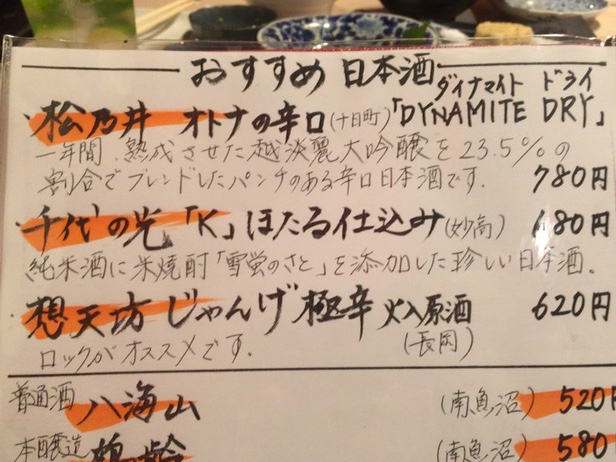 おすすめ 日本酒
ダイナマイト ドライ
松乃井 オトナの辛口(十日町)「DYNAMITE DRY」
一年間、熟成させた越淡麗大吟醸を23.5%の
割合でブレンドしたパンチのある辛口日本酒です. 780円
千代の光「K」ほたる仕込み(妙高) 680円
純米酒に米焼酎「雪蛍のさと」を添加した珍しい日本酒。
想天坊 じゃんげ 極辛 火入原酒 620円
ロックがオススメです. (長岡)
普通酒 八海山 (南魚沼) 520円
本醸造 鶴齢 (南魚沼) 580